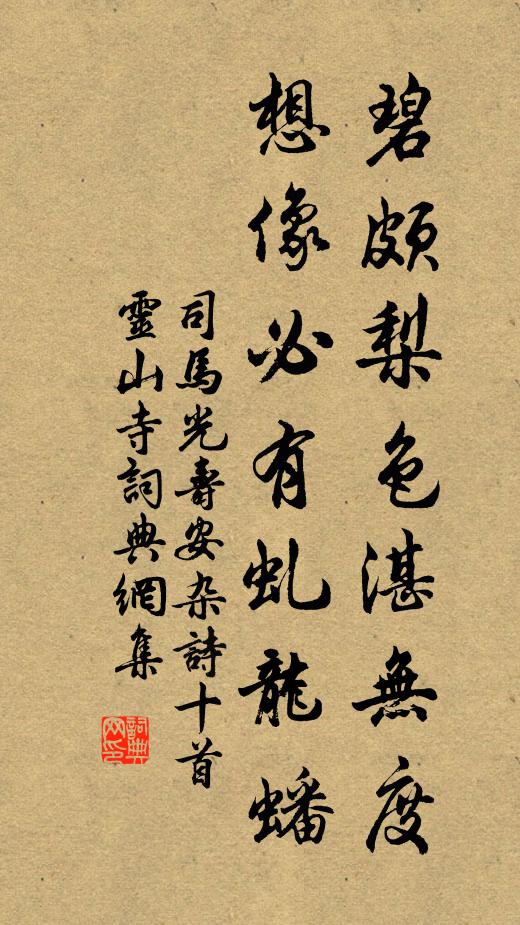 碧頗梨色湛無度
想像必有虬龍蟠
司馬光壽安杂詩十首
靈山寺詞典網集
詞典
网印